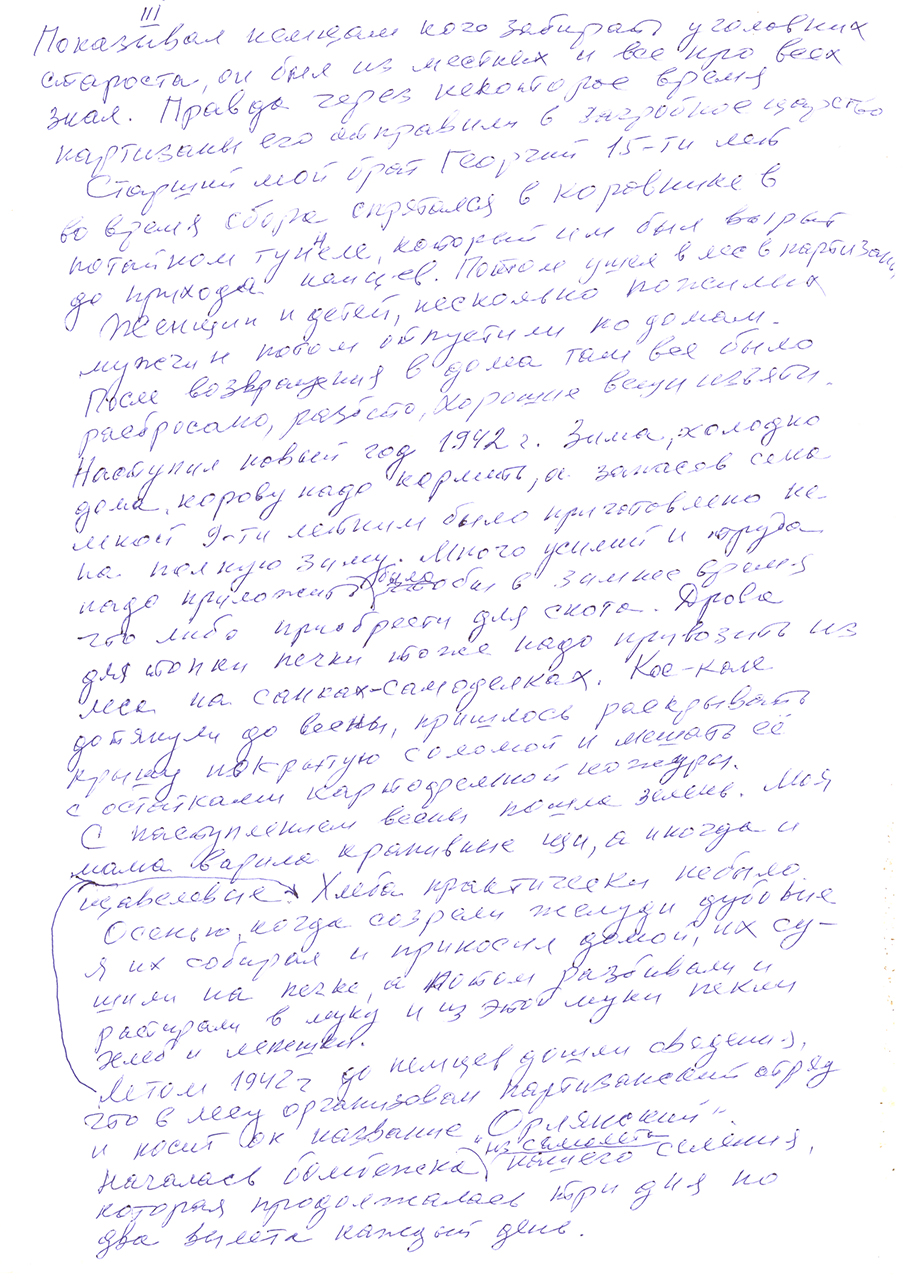 III
Показывал немцам кого забирать уголовник
староста, он был из местных и все про всех
знал. Правда через некоторое время
партизаны его отправили в загробное царство
Старший мой брат Георгий 15-ти лет
во время сбора спрятался в коровнике в
потайном туннеле, который им был вырыт
до прихода немцев. Потом ушел в лес в партизаны
Женщин и детей, несколько пожилых
мужчин потом отпустили по домам.
После возвращения в дома там все было
разбросано, разбито, хорошие вещи изъяты.
Наступил новый год 1942 г. Зима, холодно
дома, корову надо кормить, а запасов сена
мной 9-ти летним было приготовлено не
на полную зиму. Много усилий и труда
надо приложить было чтобы в зимнее время
что либо приобрести для скота. Дрова
для топки печки тоже надо привозить из
леса на санках-самоделках. Кое-как
дотянули до весны, пришлось раскрывать
крышу покрытую соломой и мешать её
с остатками картофельной кожуры.
С наступлением весны пошла зелень. Моя
мама варила крапивные щи, а иногда и
щавелевые. Хлеба практически небыло.
Осенью, когда созрели желуди дубовые
я их собирал и приносил домой, их су-
шили на печке, а потом разбивали и
растирали в муку и из этой муки пекли
хлеб и лепешки.
Летом 1942 г до немцев дошли сведения,
что в лесу организован партизанский отряд
и носит он название „Орлянский".
Началась бомбежка из самолета нашего селения,
которая продолжалась три дня по
два вылета каждый день.